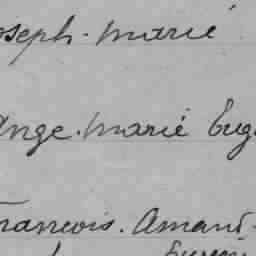 oseph. Marie
Ange. Marie Eug
François. Amand.